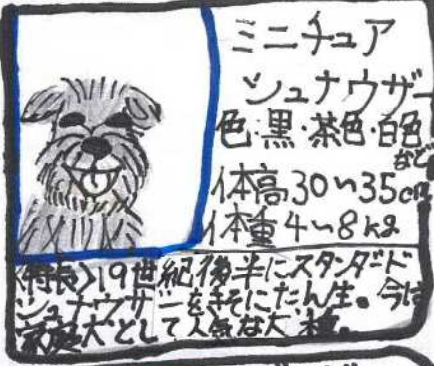 ミニチュア
シュナウザー
色・黒・茶色・白色
など
体高30〜35cm
体重4〜8kg
〈特長〉19世紀後半にスタンダード
シュナウザーをきそにたん生。今は
家庭犬として人気な犬種。